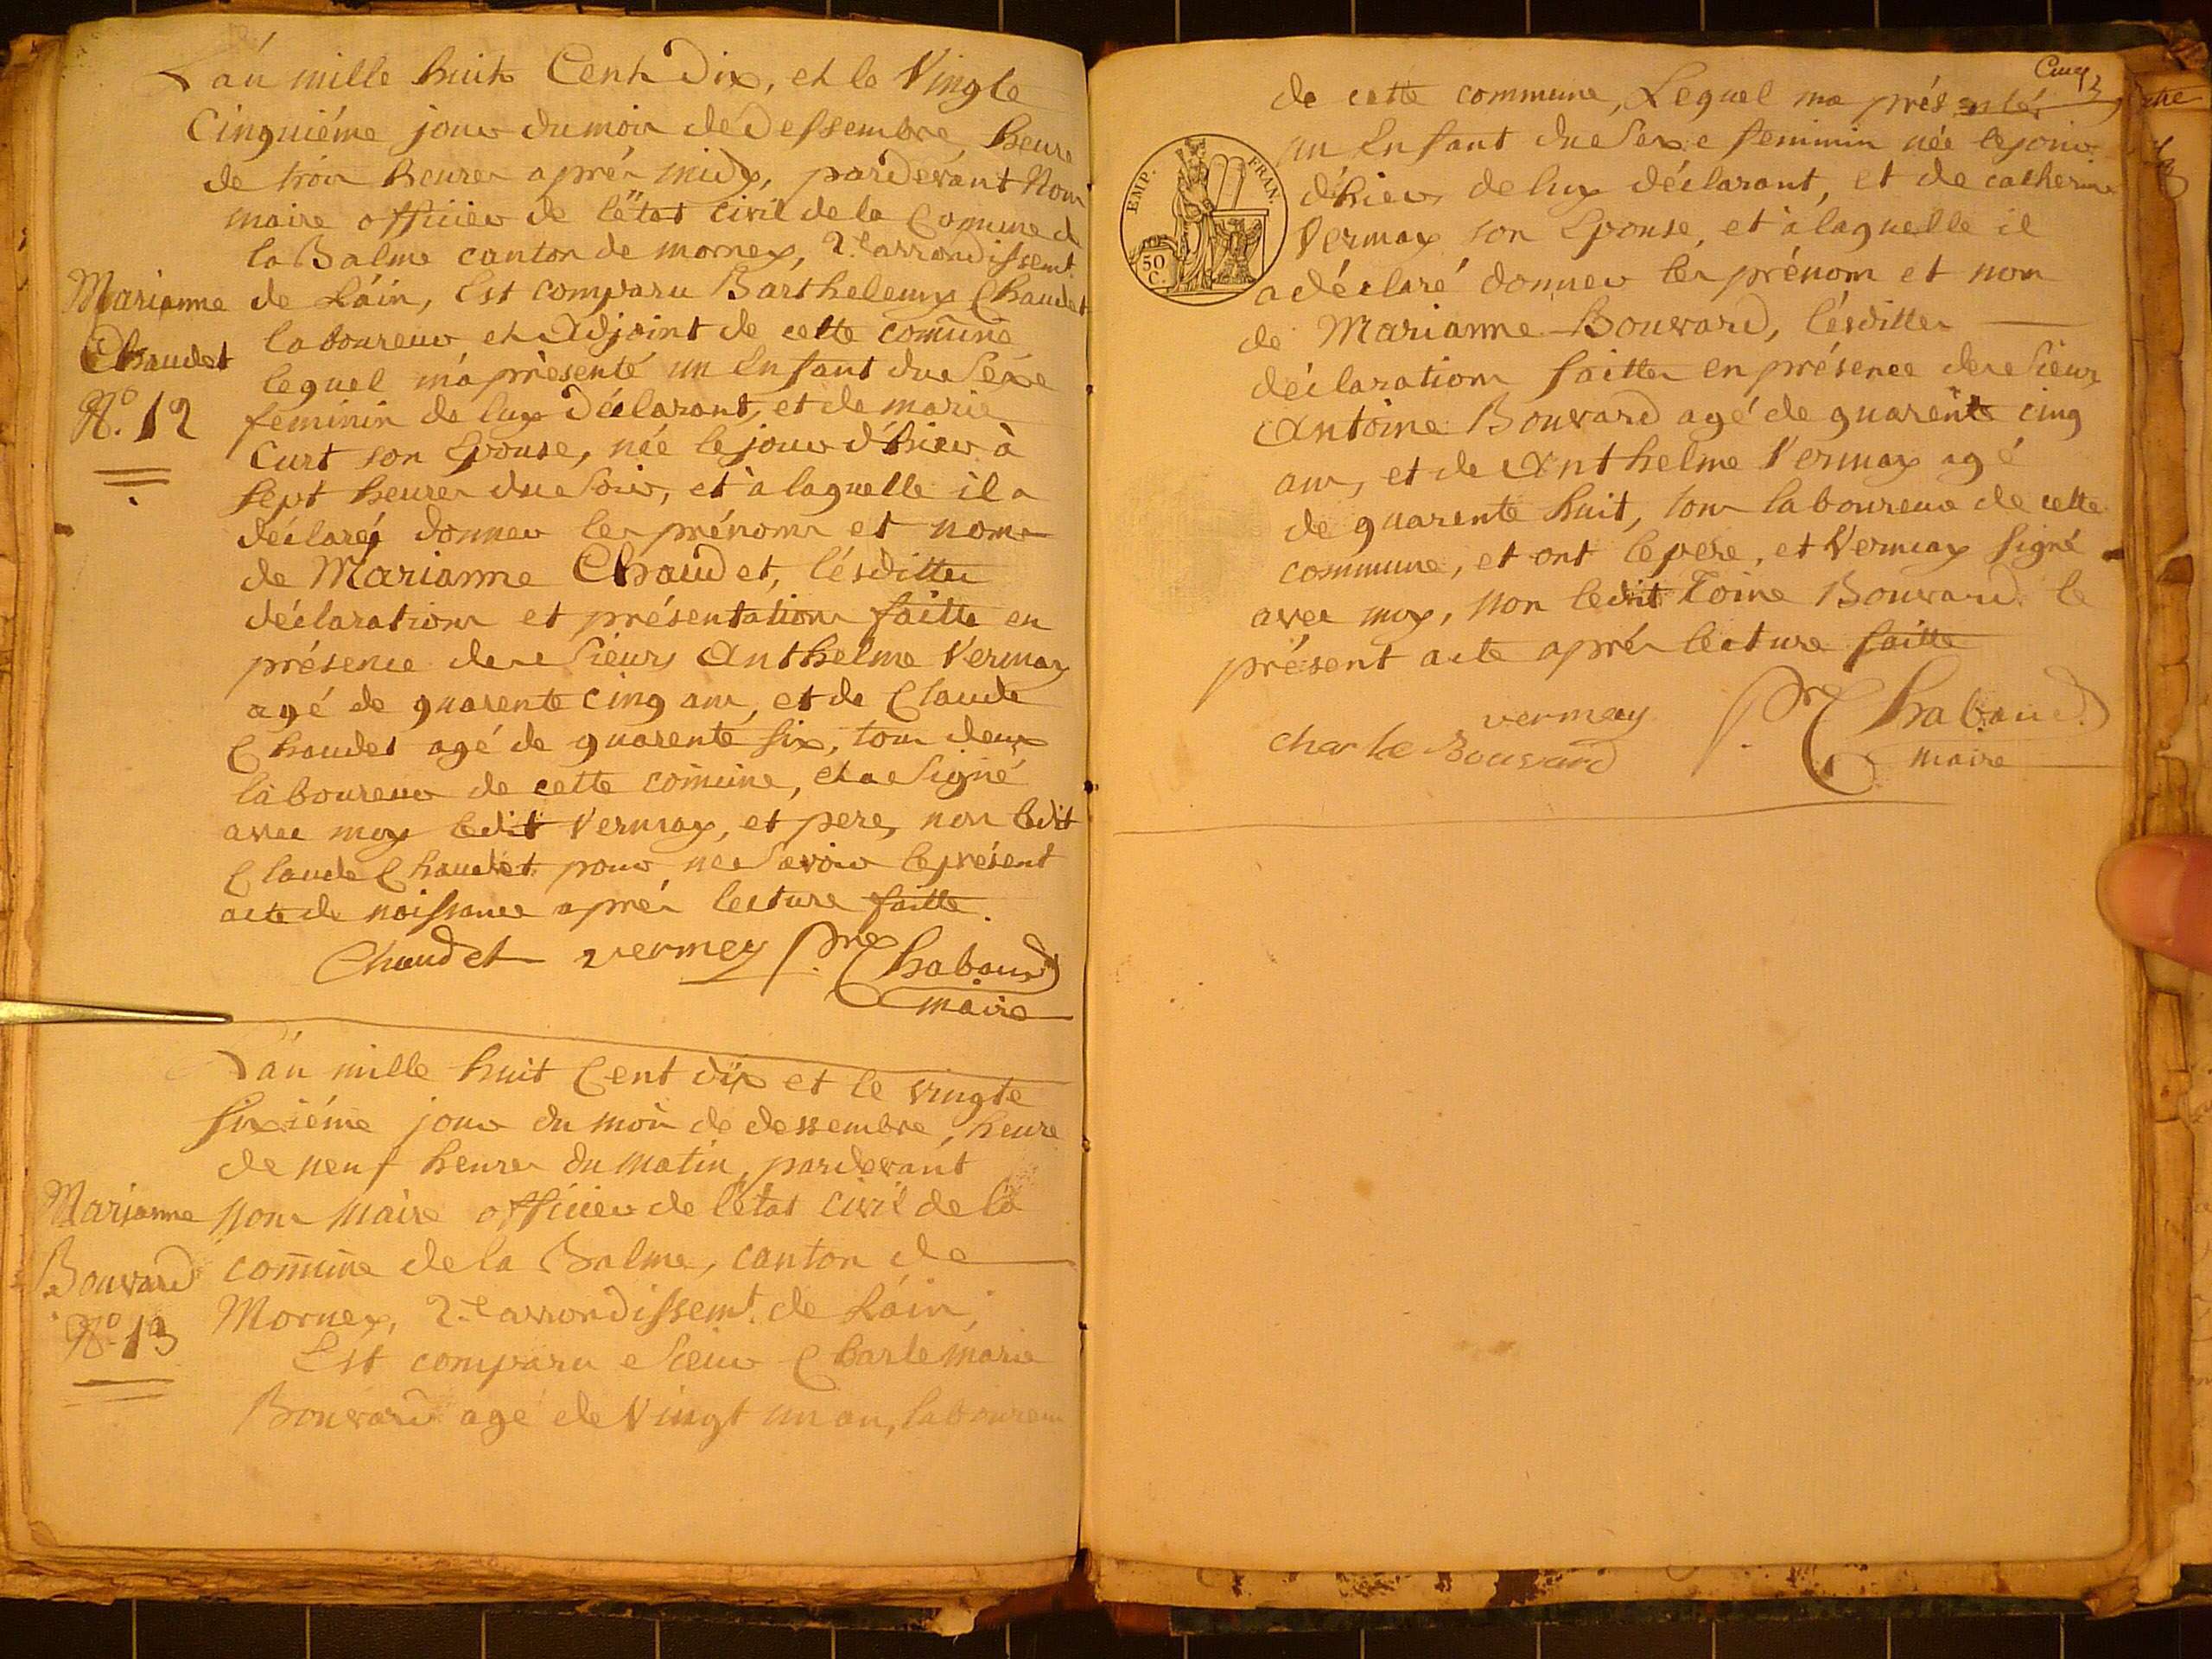 L'an mille huit Cent Dix, et le Vingte
Cinquiéme jour du mois de Dessembre, heure
de trois heures aprés midy, pardevant Nous
maire officier de l'état civil de la Comune de
la Balme canton de mornex, 2.e arrondissemt.
de L'ain, Est comparu Barthelemy Chaudet
laboureur et Adjoint de cette comune
lequel m'a présenté un Enfant du Séxe
féminin de luy Déclarant, et de marie
Curt son Epouse, née le jour d'hier à
sept heures du Soir, et à laquelle il a
déclaréz donner les prénoms et noms
de Marianne Chaudet, lésdittes
déclarations et présentations faitte en
présence des Sieurs Anthelme Vermay
agé de quarente cinq ans, et de Claude
Chaudet agé de quarente six, tous deux
laboureur de cette comune, et a Signé
avec moy ledit Vermay, et pere, non ledit
Claude Chaudet pour ne Savoir le présent
acte de naissance aprés lecture faitte.
Marianne
Chaudet
N.o 12
Chaudet vermey Pre Chabaud
maire
L'an mille huit Cent dix et le vingte
sixiéme jour du mois de dessembre, heure
de neuf heures du matin, pardevant
Nous Maire officier de l'état civil de la
comune de la Balme, canton de
Mornex, 2.e arrondissemt. de L'ain,
Est comparu Sieur Charle marie
Bouvard agé de Vingt un an, laboureur
Marianne
Bouvard
N.o 13
Cinq
EMP. FRAN.
50
C.
de cette commune, Lequel ma présentéz
un Enfant du Sexe feminin née le jour
d'hier, de luy déclarant, et de catherine
Vermay son Epouse, et à laquelle il
a déclaré donner les prénom et nom
de Marianne Bouvard, lésdittes
déclarations faittes en présence des Sieurs
Antoine Bouvard agé de quarente cinq
ans, et de Anthelme Vermay agé
de quarente huit, tous laboureur de cette
commune, et ont le pére, et Vermay signé
avec moy, non ledit Toine Bouvard le
présent acte aprés lecture faitte
vermay Pre Chabaud
charle Bouvard maire